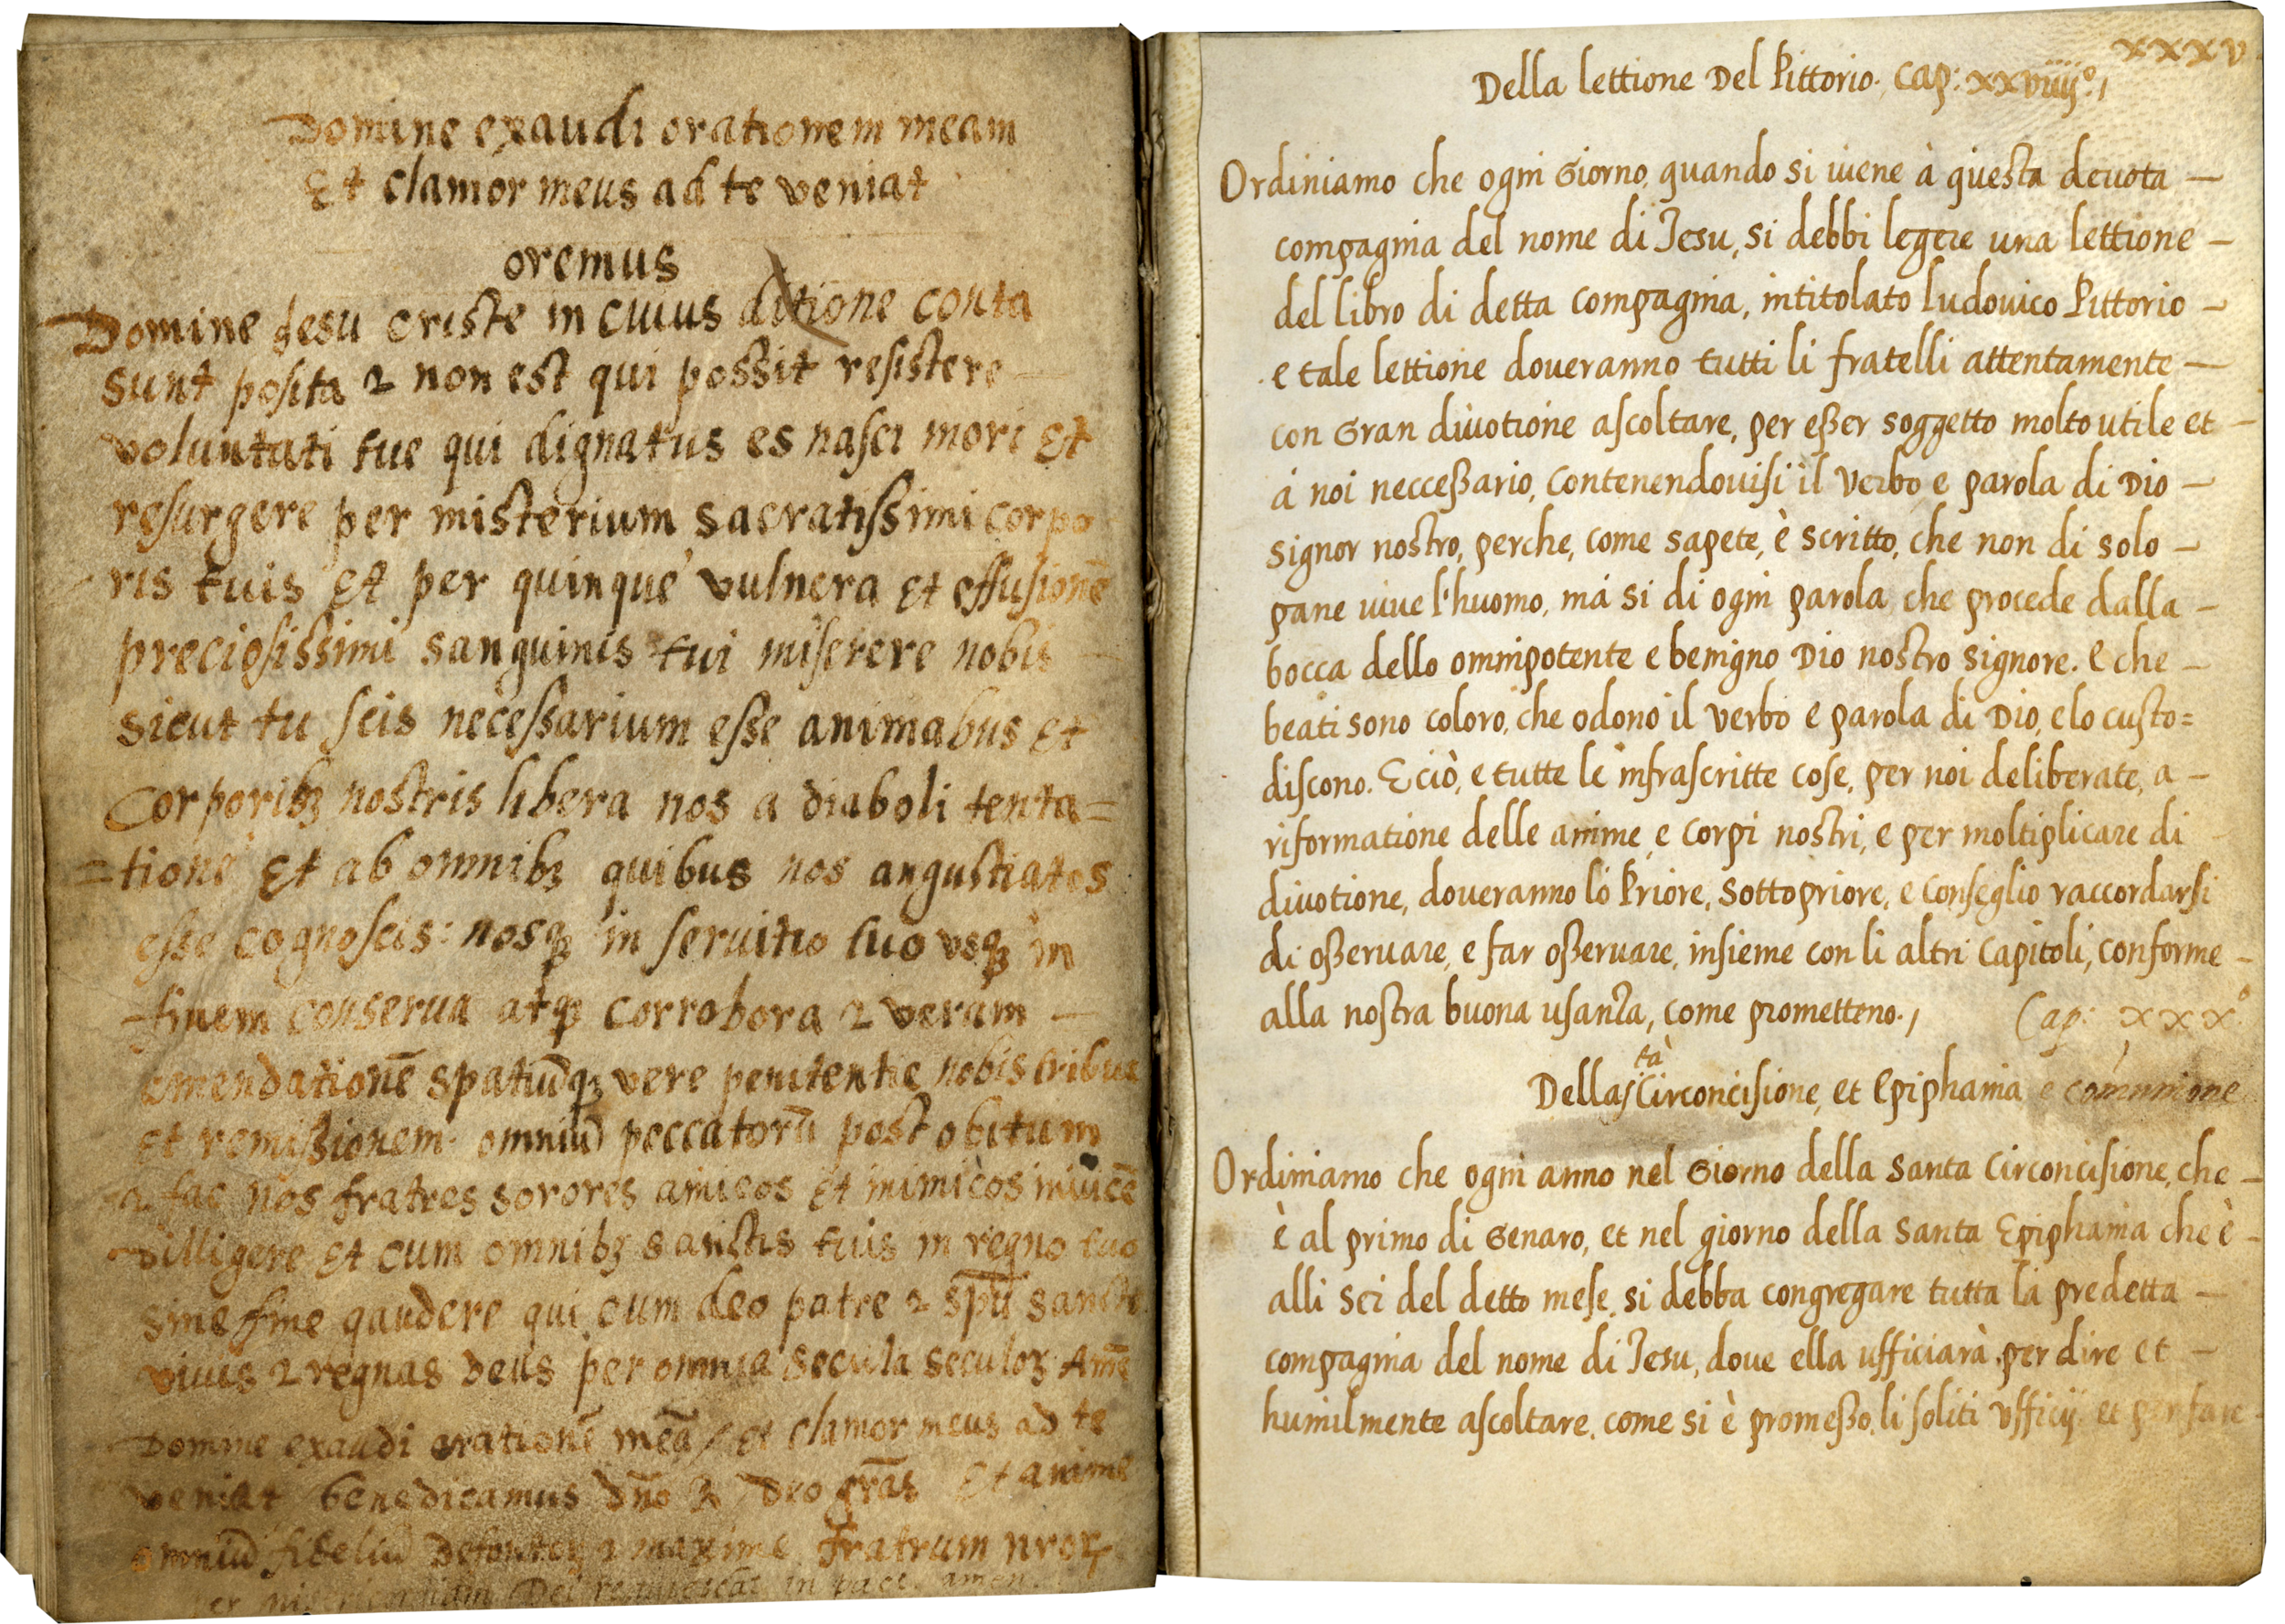 Domine exaudi orationem meam
Et clamor meus ad te veniat
oremus
Domine Jesu criste in cuius ditione conta
sunt posita ⁊ non est qui possit resistere
voluntati tue qui dignatus es nasci mori Et
resurgere per misterium sacratissimi corpo
ris tuis Et per quinque vulnera Et effusionē
preciosissimi sanguinis tui miserere nobis
sicut tu scis necessarium esse animabus Et
Corporibꝫ nostris libera nos a diaboli tenta=
=tione Et ab omnibꝫ quibus nos angustiatos
esse cognoscis: nosqꝫ in seruitio tuo vsqꝫ in
finem conserua atqꝫ corrobora ⁊ veram —
emendationē spatiūqꝫ vere penitentie nobis tribue
Et remissionem omniū peccatorū post obitum
⁊ fac nos fratres sorores amicos Et inimicos inuicē
dilligere Et cum omnibꝫ sanctis tuis in regno tuo
sine fine gaudere qui cum deo patre ⁊ spū sancto
viuis ⁊ regnas Deus per omnia secula seculoꝝ Amē
Domine exaudi orationē meā / Et clamor meus ad te
veniat benedicamus dño ℞ Deo grās Et anime
omniū fideliū Defunctoꝝ ⁊ maxime fratrum nroꝝ
per misericordiam Dei requiescāt in pace. amen.
xxxv
Della lettione Del Pittorio. Cap: xxviiij.º/
Ordiniamo che ogni Giorno, quando si uiene à questa deuota —
compagnia del nome di Jesu, si debbi legere una lettione —
del libro di detta compagnia, intitolato ludouico Pittorio —
e tale lettione doueranno tutti li fratelli attentamente —
con Gran diuotione ascoltare, per eßer soggetto molto utile et —
á noi necceßario, contenendouisi il verbo e parola di Dio —
signor nostro, perche, come sapete, è scritto, che non di solo —
pane uiue l'huomo, má si di ogni parola che procede dalla —
bocca dello omnipotente e benigno Dio nostro signore. e che —
beati sono coloro, che odono il verbo e parola di Dio, e lo custo=
discono. E ciò, e tutte le infrascritte cose, per noi deliberate, a —
riformatione delle anime, e corpi nostri, e per moltiplicare di
diuotione, doueranno ló Priore, sottopriore, e conseglio raccordarsi
di oßeruare, e far oßeruare, insieme con li altri capitoli, conforme —
alla nostra buona usanza, come prometteno./ Cap: xxxº
Della sᵗᵃ Circoncisione, et Epiphania e comunione
Ordiniamo che ogni anno nel Giorno della santa circoncisione, che —
è al primo di Genaro, et nel giorno della santa Epiphania che è —
alli sei del detto mese, si debba congregare tutta la predetta —
compagnia del nome di Jesu, doue ella ufficiarà per dire et —
humilmente ascoltare, come si è promeßo, li soliti vfficij et per fare